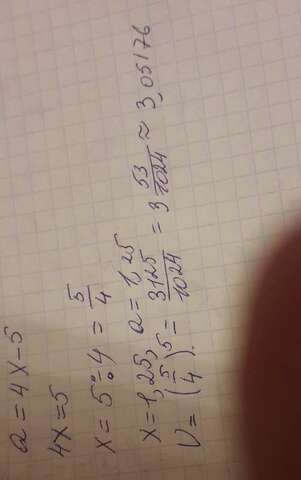 a = 4x-5
4x=5
x = 5÷4 = 5/4
x=1,25, a=1,25
V = (5/4)^5 = 3125/1024 = 3 53/1024 ≈ 3,05176